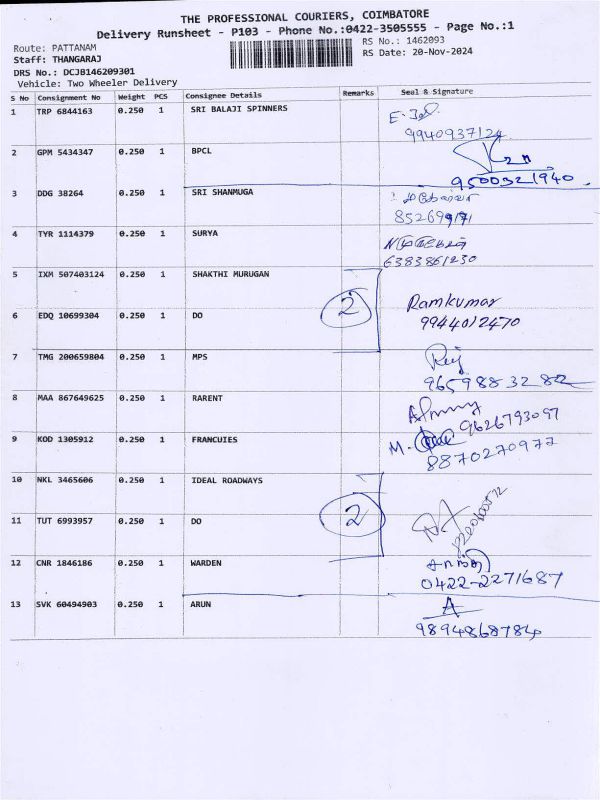 THE PROFESSIONAL COURIERS, COIMBATORE
Delivery Runsheet - P103 - Phone No.:0422-3505555 - Page No.:1
Route: PATTANAM
RS No.: 1462093
Staff: THANGARAJ
RS Date: 20-Nov-2024
DRS No.: DCJ8146209301
Vehicle: Two Wheeler Delivery
S No Consignment No Weight PCS Consignee Details Remarks Seal & Signature
1 TRP 6844163 0.250 1 SRI BALAJI SPINNERS
9940937124
2 GPM 5434347 0.250 1 BPCL
9500321940
3 DDG 38264 0.250 1 SRI SHANMUGA
4 TYR 1114379 0.250 1 SURYA
6383861230
5 IXM 507403124 0.250 1 SHAKTHI MURUGAN
2 Ramkumar
6 EDQ 10699304 0.250 1 DO
9944012470
7 TMG 200659804 0.250 1 MPS
9659883282
8 MAA 867649625 0.250 1 RARENT
9626793097
9 KOD 1305912 0.250 1 FRANCUIES
M.
8870270977
10 NKL 3465606 0.250 1 IDEAL ROADWAYS
2
11 TUT 6993957 0.250 1 DO
12 CNR 1846186 0.250 1 WARDEN
0422-2271687
13 SVK 60494903 0.250 1 ARUN
A
9894868784